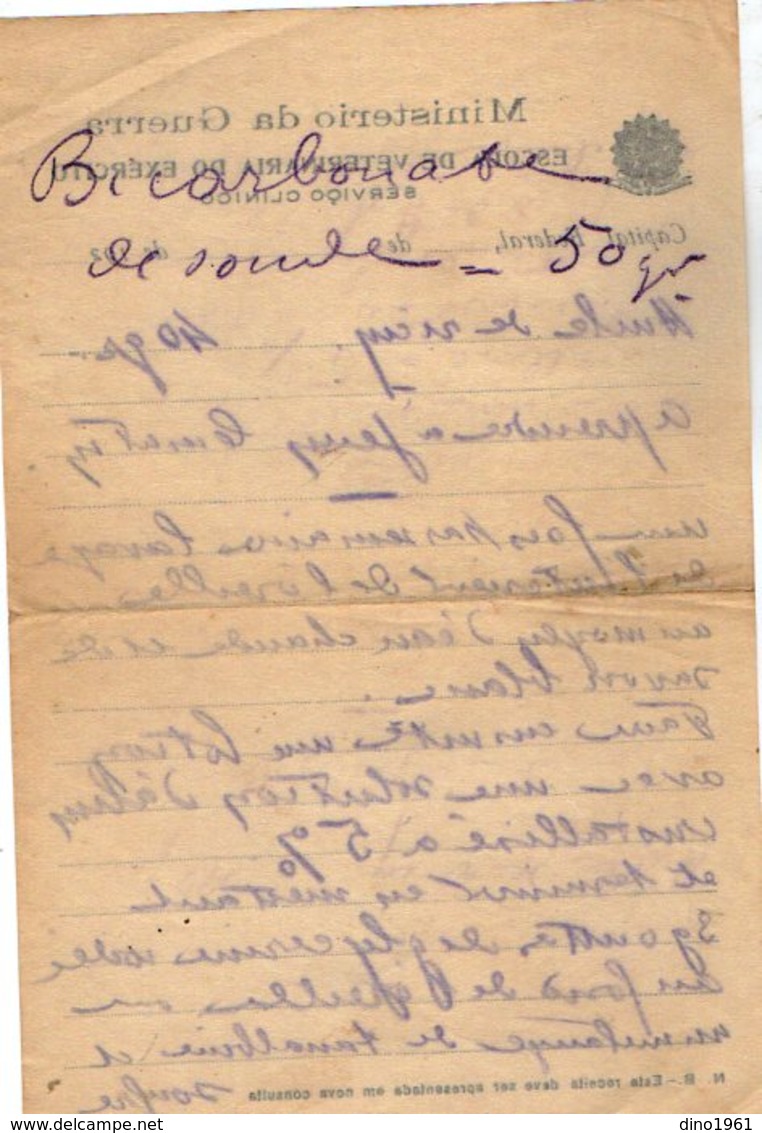 Ministerio da Guerra
ESCOLA DE VETERINARIA DO EXÉRCITO
SERVIÇO CLINICO
Bicarbonate
Capital Federal, de de 193
de soude = 50 gr
Huile de ricin 40 gr.
a prendre a jeun le matin
un fois par semaine lavage
de l'oreille
au moyen d'eau chaude et de
savon blanc.
Faire ensuite une lotion
avec une solution d'alun
cristallisé à 5%
et terminer en mettant
3 gouttes de glycerine iodée
au fond de l'oreille ou
un melange de tanalbine et
N. B. - Esta receita deve ser apresentada em nova consulta
soufre
dino1961